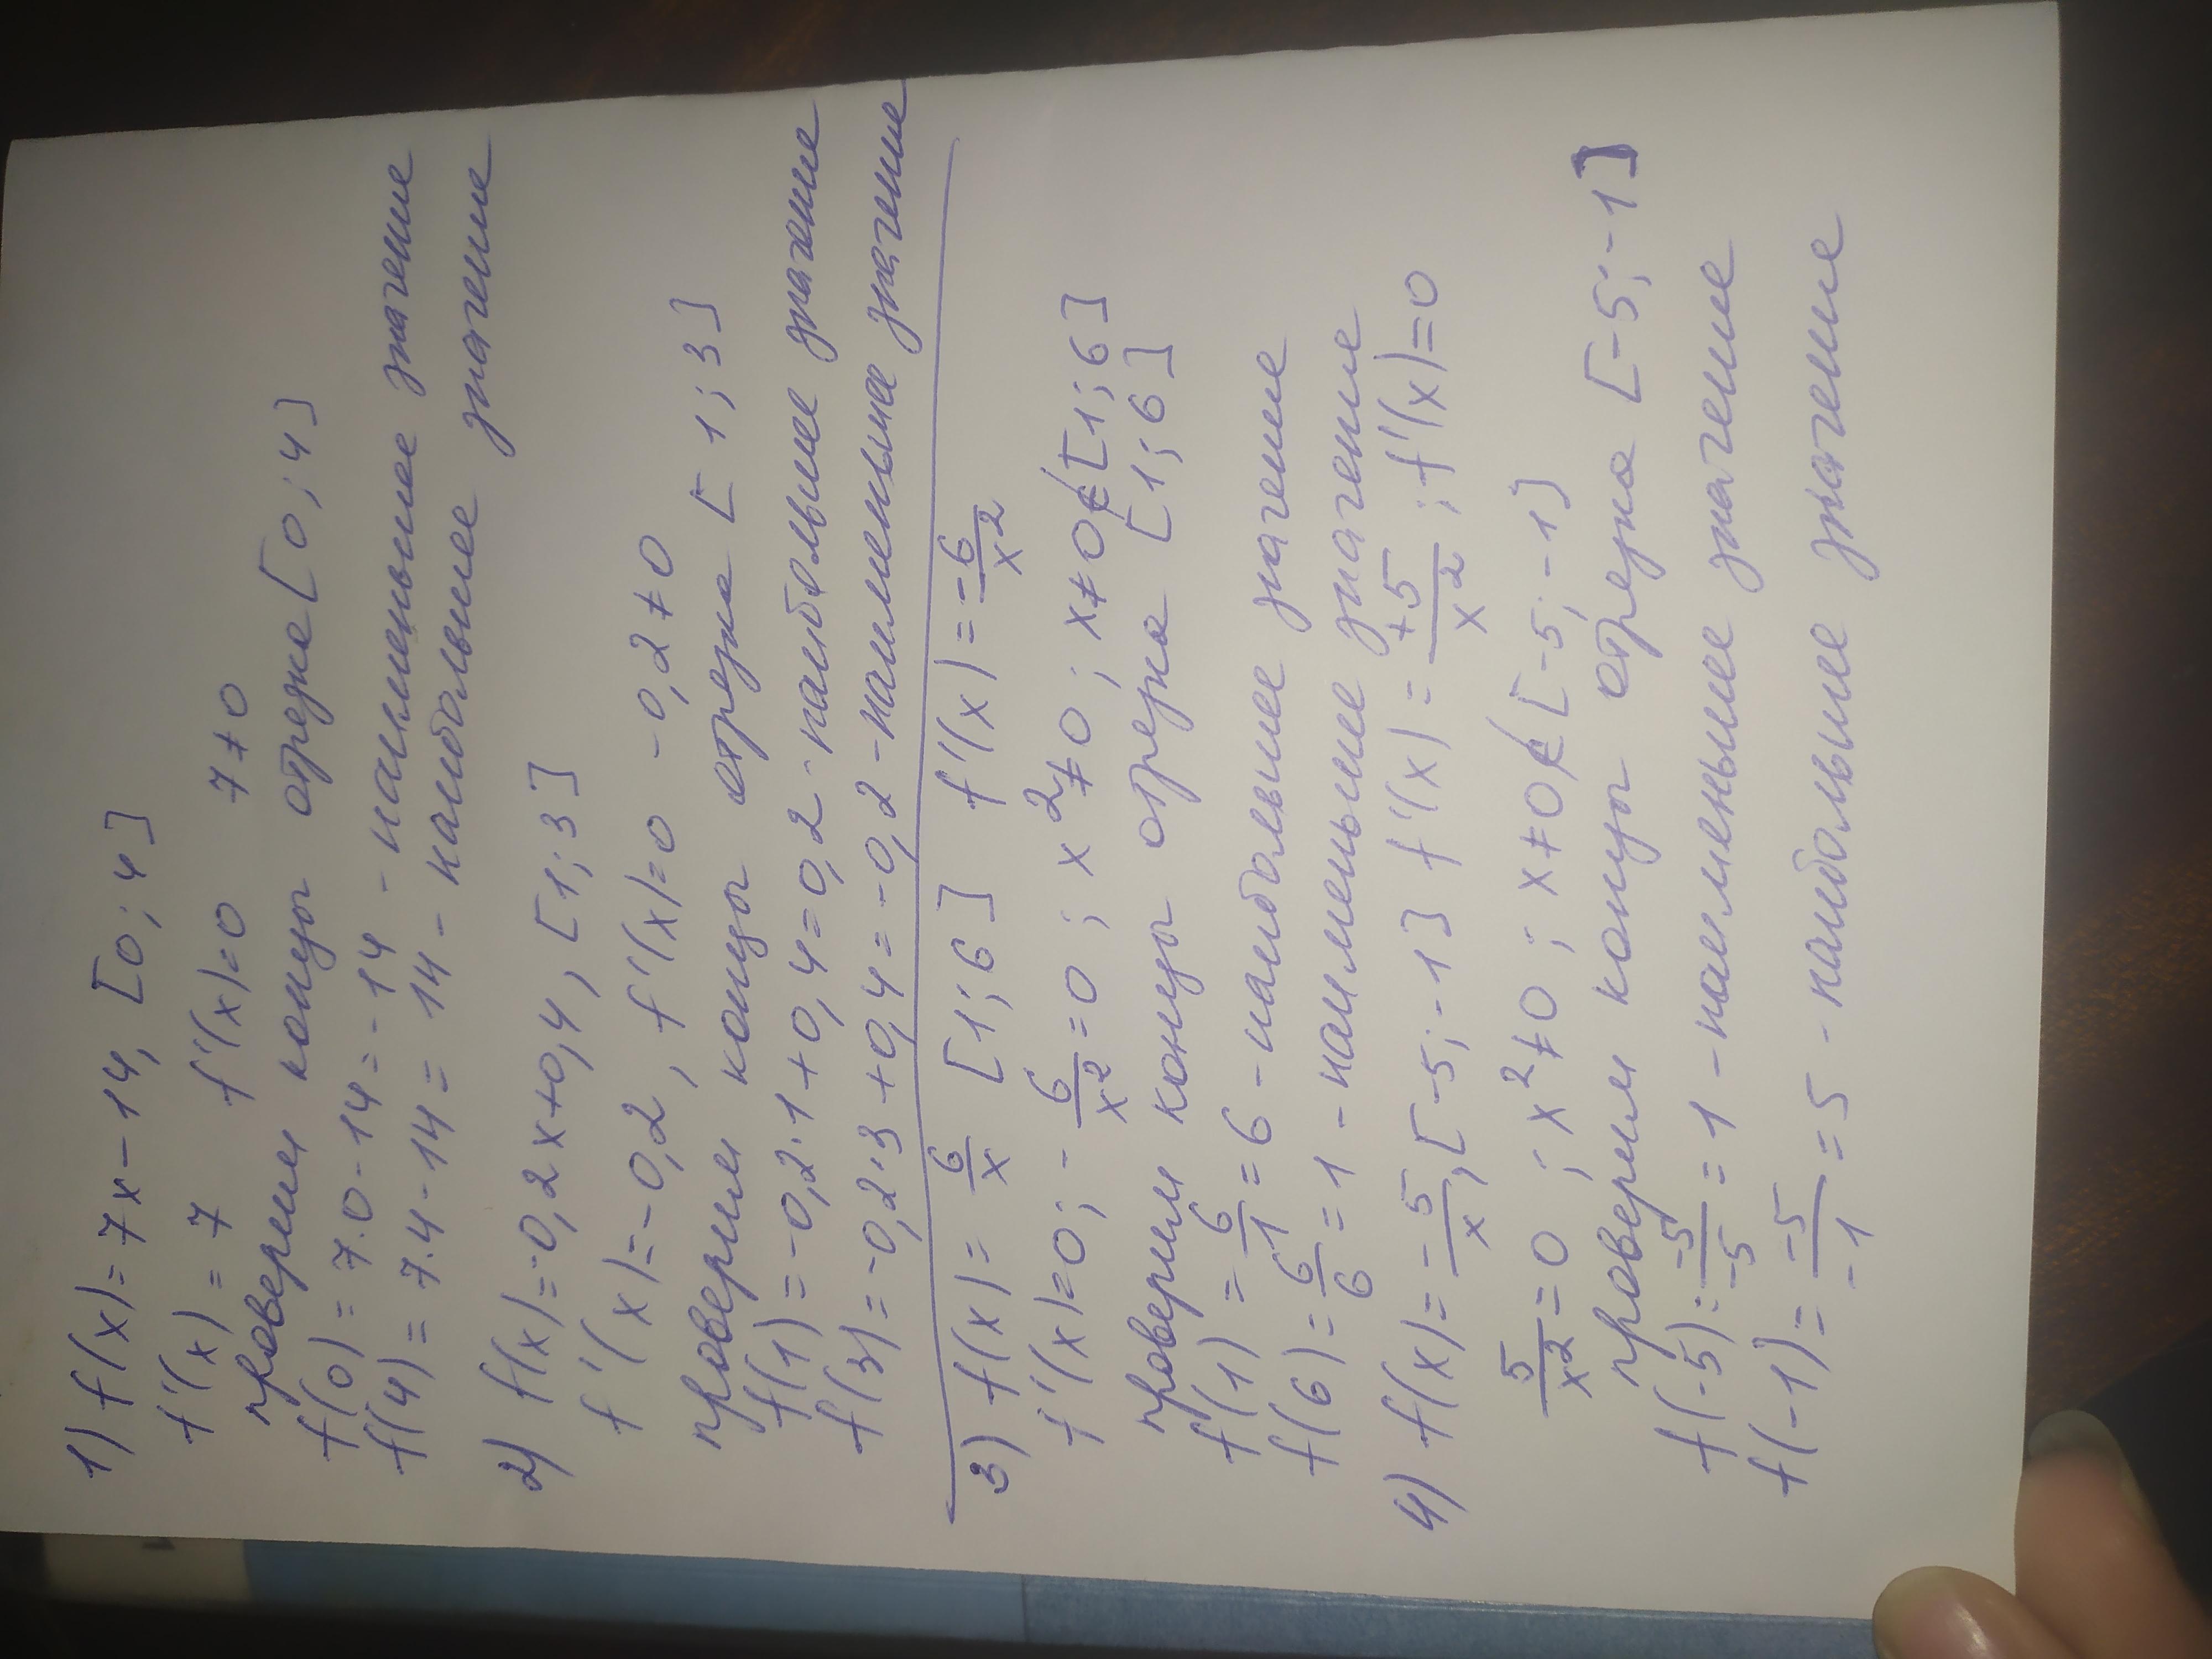 1) f(x)=7x-14, [0;4]
f'(x)=7 f'(x)=0 7≠0
проверим концы отрезка [0;4]
f(0)=7·0-14=-14 - наименьшее значение
f(4)=7·4-14=14 - наибольшее значение
2) f(x)=-0,2x+0,4, [1;3]
f'(x)=-0,2, f'(x)=0 -0,2≠0
проверим концы отрезка [1;3]
f(1)=-0,2·1+0,4=0,2-наибольшее значение
f(3)=-0,2·3+0,4=-0,2-наименьшее значение
3) f(x)=6/x [1;6] f'(x)=-6/x²
f'(x)=0; -6/x²=0; x²≠0; x≠0∉[1;6]
проверим концы отрезка [1;6]
f(1)=6/1=6-наибольшее значение
f(6)=6/6=1-наименьшее значение
4) f(x)=-5/x, [-5;-1] f'(x)=+5/x²; f'(x)=0
5/x²=0; x²≠0; x≠0∉[-5;-1]
проверим концы отрезка [-5;-1]
f(-5)=-5/-5=1-наименьшее значение
f(-1)=-5/-1=5-наибольшее значение